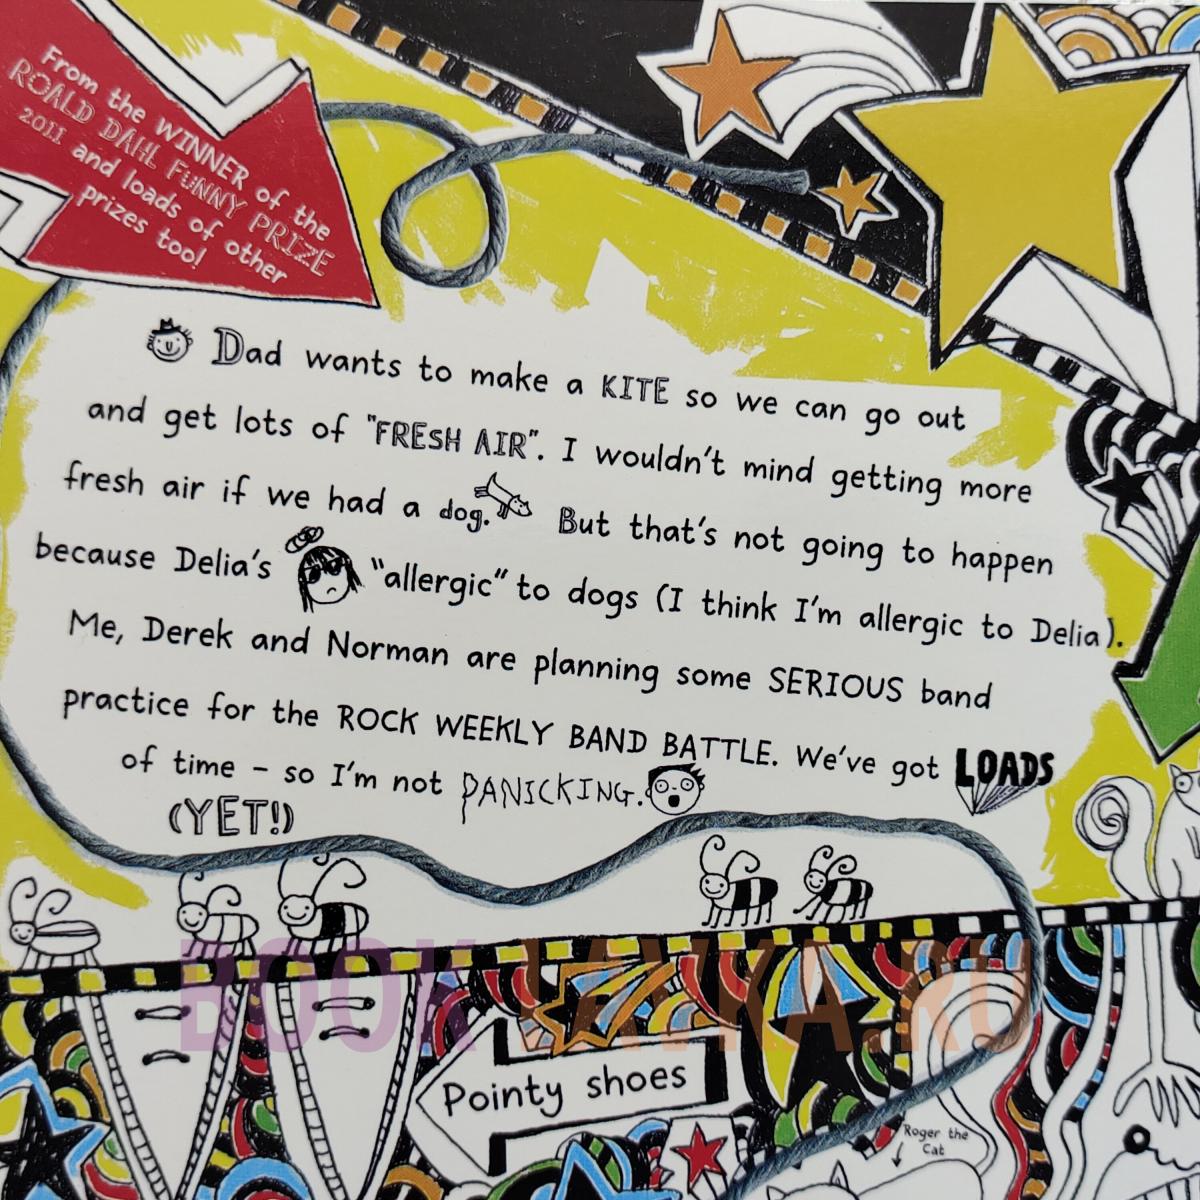 From the WINNER of the
ROALD DAHL FUNNY PRIZE
2011 and loads of other
prizes too!
Dad wants to make a KITE so we can go out
and get lots of "FRESH AIR". I wouldn't mind getting more
fresh air if we had a dog. But that's not going to happen
because Delia's "allergic" to dogs (I think I'm allergic to Delia).
Me, Derek and Norman are planning some SERIOUS band
practice for the ROCK WEEKLY BAND BATTLE. We've got LOADS
of time – so I'm not PANICKING.
(YET!)
BOOKLAVKA.RU
Pointy shoes
Roger the
Cat